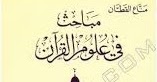 مناع القطان
مباحث
في علوم القرآن